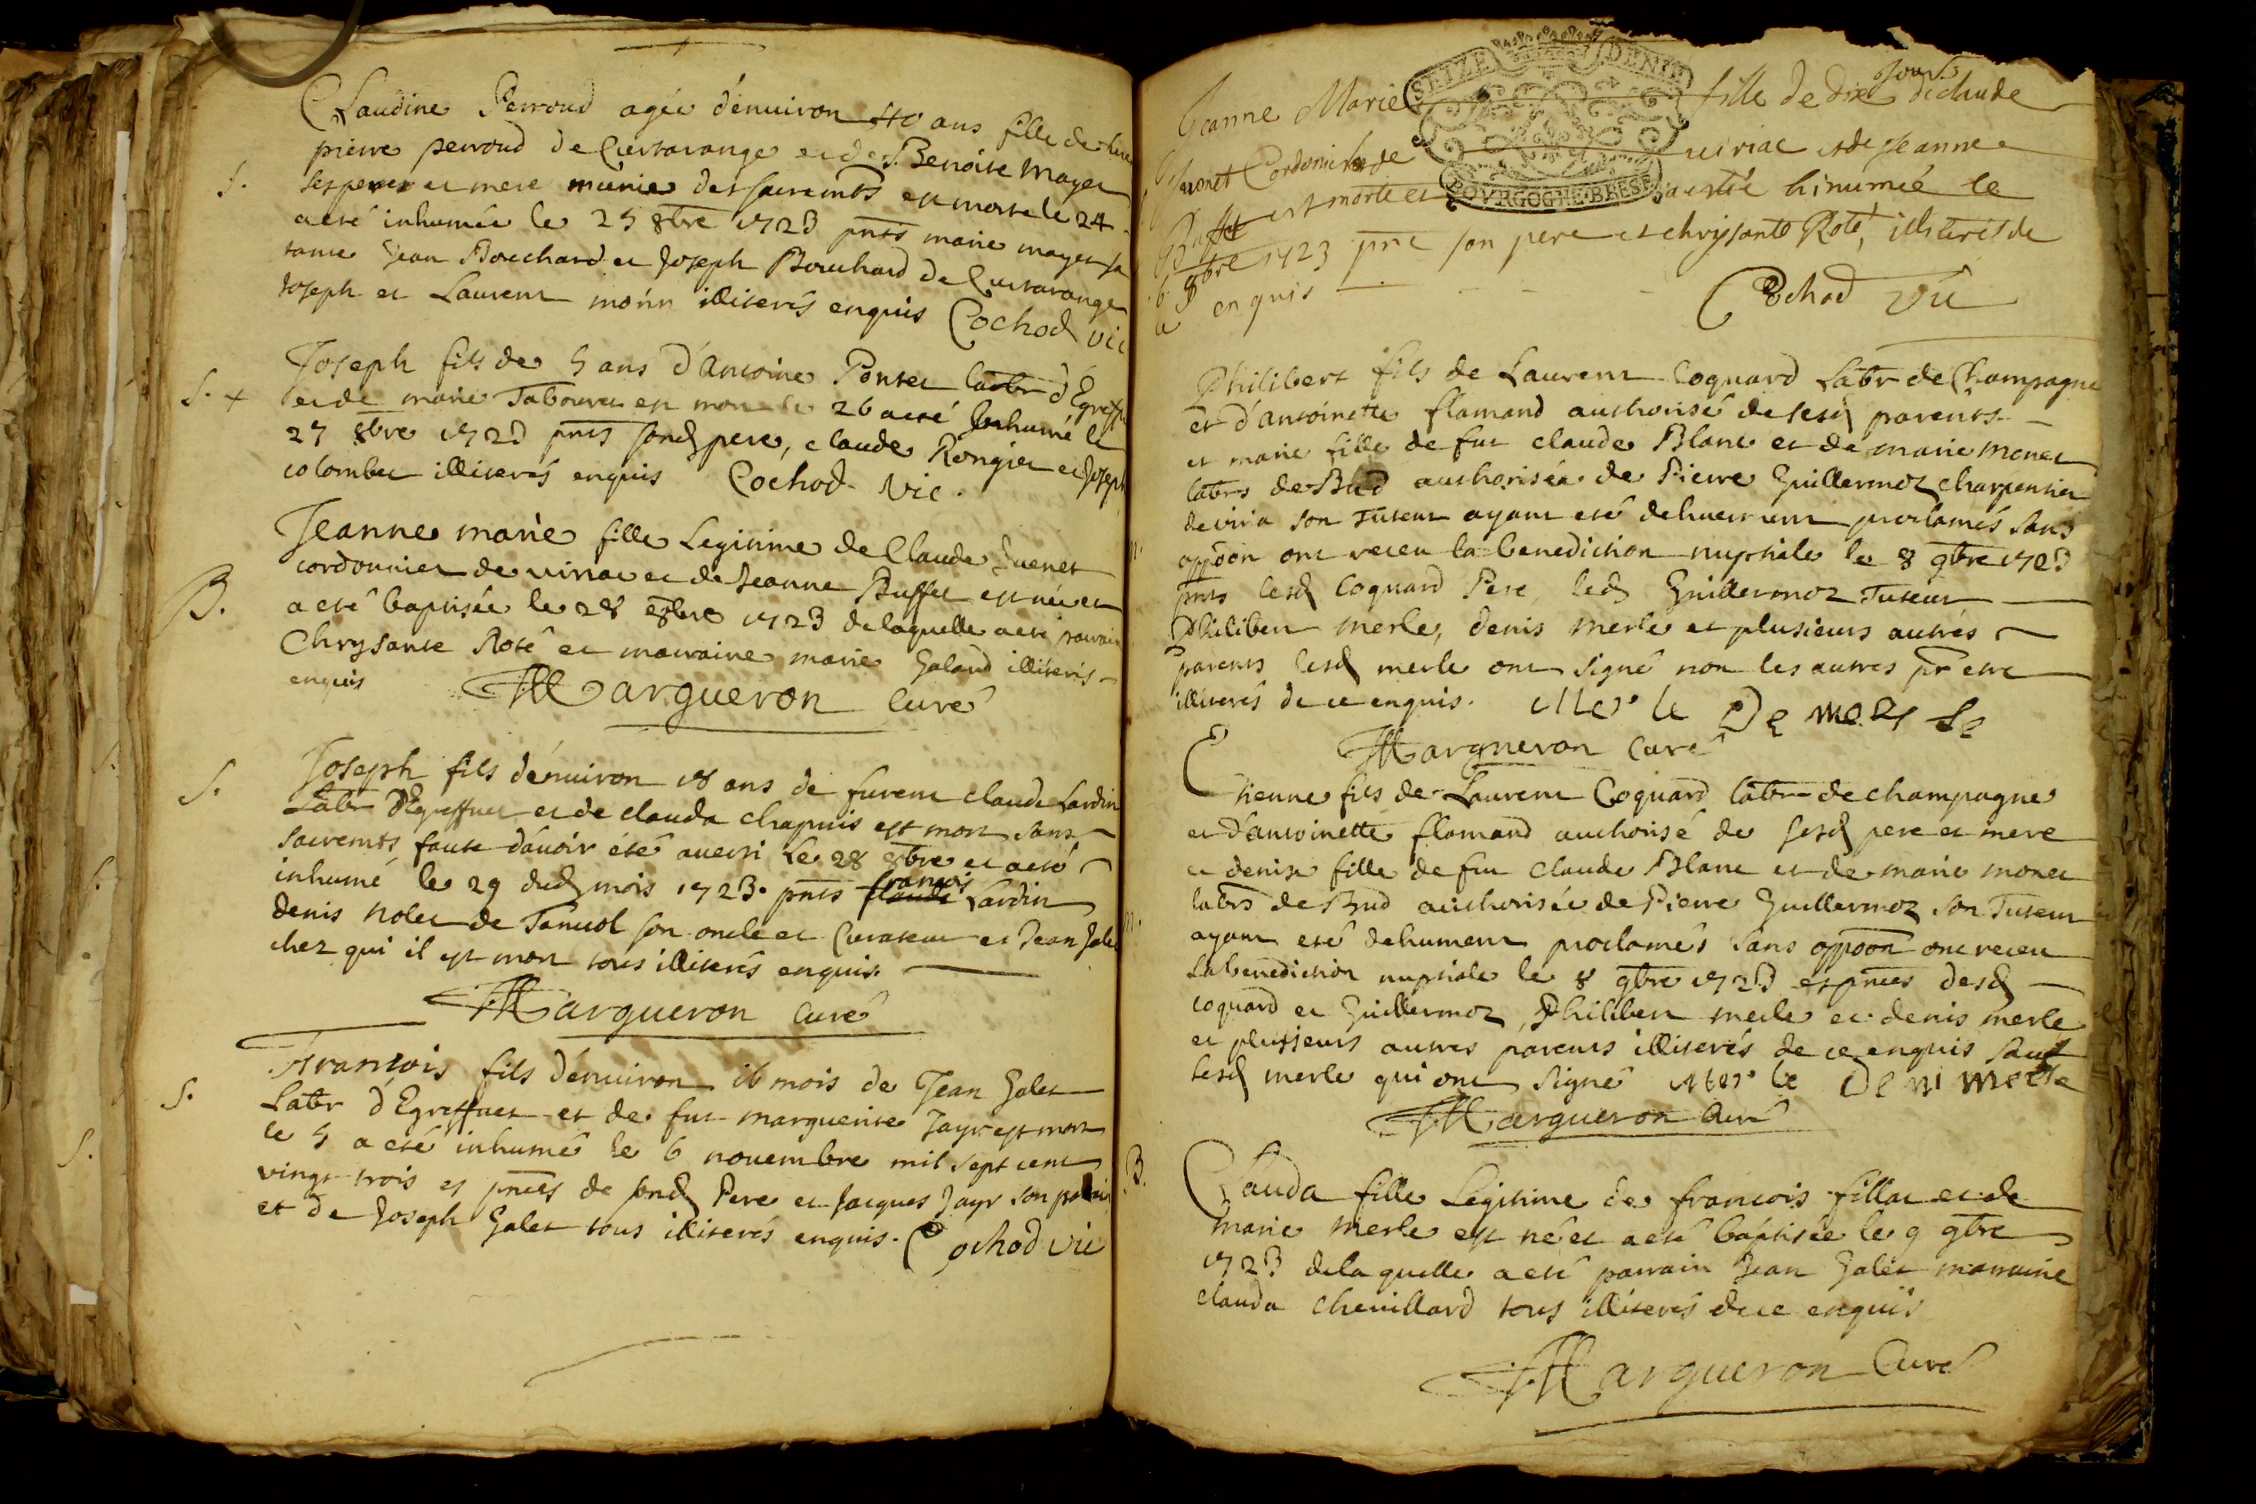 Claudine Perroud agée d'enuiron 40 ans fille de
pierre perroud de Curtarange et de Benoite mayet
S. ses pere et mere munie des sacremts est morte le 24
a eté inhumée le 25 8bre 1723 pnts marie mayet sa
tante Jean Bouchard et Joseph Bouchard de Curtarange
Joseph et Laurent illiterés enquis Cochod vic
Joseph fils de 5 ans d'Antoine Ponset labr d'Egreffu
S. + et de marie Tabouret est mort le 26 a eté Inhumé le
27 8bre 1723 pnts sond pere, claude Rongier et Joseph
colombet illiterés enquis Cochod vic.
Jeanne marie fille Legitime de Claude Juenet
cordonnier de viriac et de Jeanne Buffet est née et
B. a eté baptisée le 28 8bre 1723 de laquelle a eté parrain
Chrysante Roté et marraine marie Galand illiterés
enquis Margueron Curé
Joseph fils d'énuiron 18 ans de furent claude Lardin
S. Labr d'Egreffuet et de clauda chapuis est mort sans
sacremts faute d'avoir été auerti le 28 8bre et a eté
inhumé le 29 dud mois 1723. pnts claude francois Lardin
denis Nolet de Tanuol son oncle et Curateur et Jean Galet
chez qui il est mort tous illiterés enquis
Margueron Curé
Francois fils d'énuiron 16 mois de Jean Galet
S. Labr d'Egreffuet et de fut marguerite Jayr est mort
le 5 a eté inhumé le 6 nouembre mil sept cent
vingt trois es pnces de sond Pere et Jacques Jayr son parrain
et de Joseph Galet tous illiterés enquis. Cochod vic
SEIZE DENIE
BOVRGOGNE BRESSE
Jeanne Marie fille de dix jours de claude
Juenet Cordonier de viriac et de Jeanne
Buffet est morte et a eté hinumée le
8bre 1723 pnt son pere et chrysante Roté, illiterés de
ce enquis
Cochod vic
Philibert fils de Laurent Coquard Labr de Champagne
et d'antoinette flamand authorisé de sesd parents
et marie fille de fut claude Blanc et de marie monet
labrs de Bud authorisée de Pierre Guillermoz charpentier
de viria son Tuteur ayant eté dehuement proclamés sans
oppoôn ont receu la benediction nuptiale le 8 9bre 1723
pnts lesd Coquard Pere, led Guillermoz Tuteur
Philibert merle, denis merle et plusieurs autres
parents lesd merle ont signé non les autres pr etre
illiterés de ce enquis. Merle De merle
Margueron Curé
Etienne fils de Laurent Coquard labr de champagne
et d'antoinette flamand authorisé de sesd pere et mere
et denise fille de fut claude Blanc et de marie monet
labrs de Bud authorisée de Pierre Guillermoz son Tuteur
ayant eté dehument proclamés sans oppoôn ont receu
la benediction nuptiale le 8 9bre 1723 es pnces desd
coquard et Guillermoz, Philibert merle et denis merle
et plusieurs autres parents illiterés de ce enquis sauf
lesd merle qui ont signé Merle Deni merle
Margueron Curé
B. Clauda fille Legitime de francois fillat et de
marie merle est née et a eté baptisée le 9 9bre
1723 de la quelle a eté parrain Jean Galet marraine
clauda Cheuillard tous illiterés de ce enquis
Margueron Curé